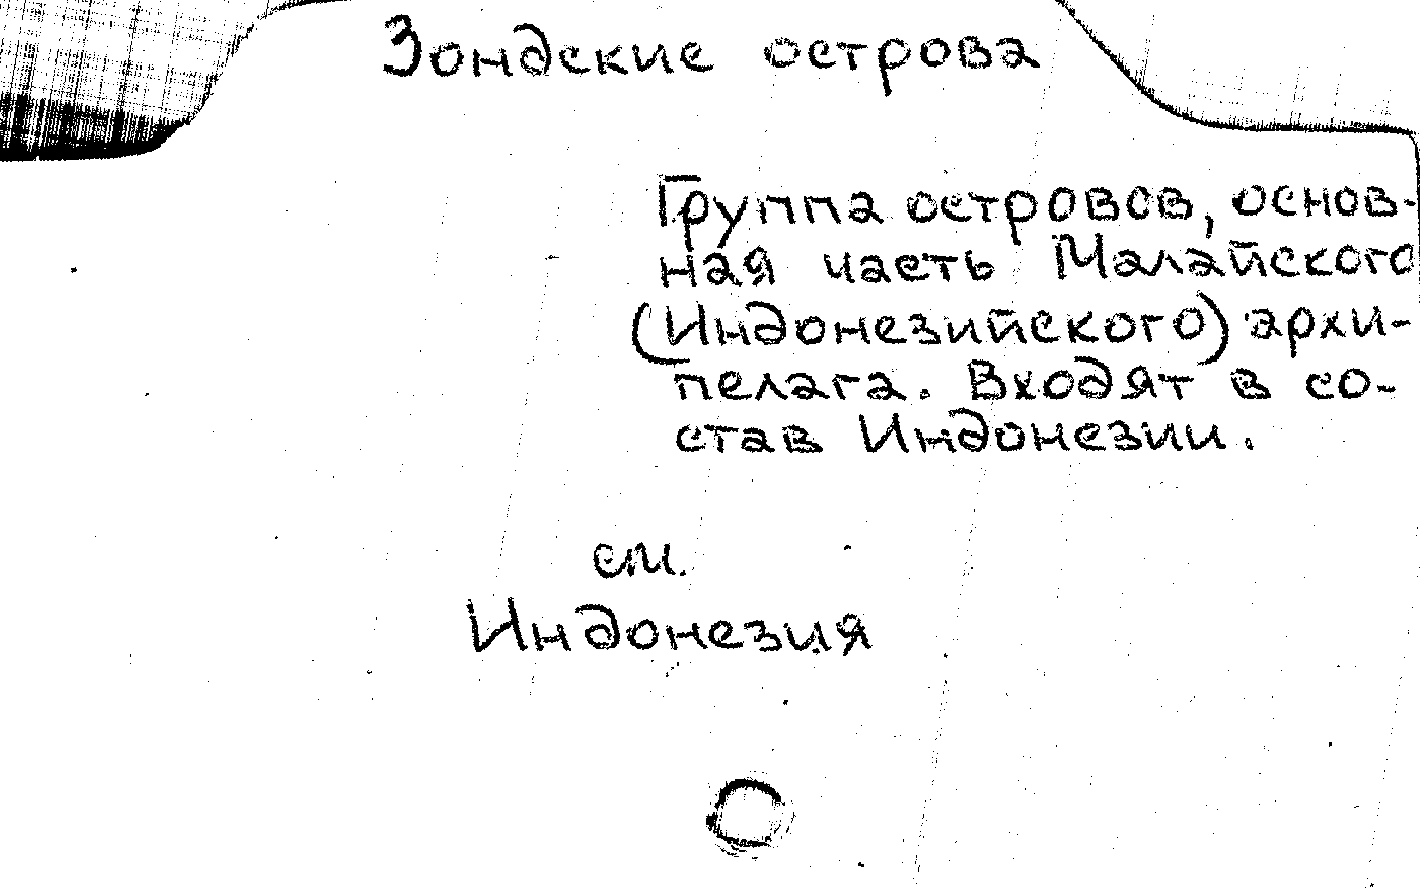 Зондские острова
Группа островов, основ-
ная часть Малайского
(Индонезийского) архи-
пелага. Входят в со-
став Индонезии.
см.
Индонезия